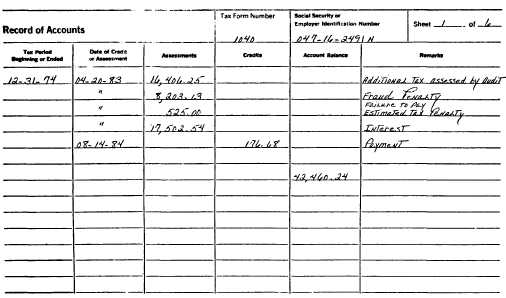 Record of Accounts
Tax Form Number
1040
Social Security or
Employer Identification Number
047-16-2491 N
Sheet 1 of 6
Tax Period
Beginning or Ended
Date of Credit
or Assessment
Assessments
Credits
Account Balance
Remarks
12-31-74 04-20-83 16,406.25 Additional Tax assessed by Audit
" 8,203.13 Fraud Penalty
Failure to Pay
" 525.00 Estimated Tax Penalty
" 17,502.54 Interest
08-14-84 176.68 Payment
42,460.24